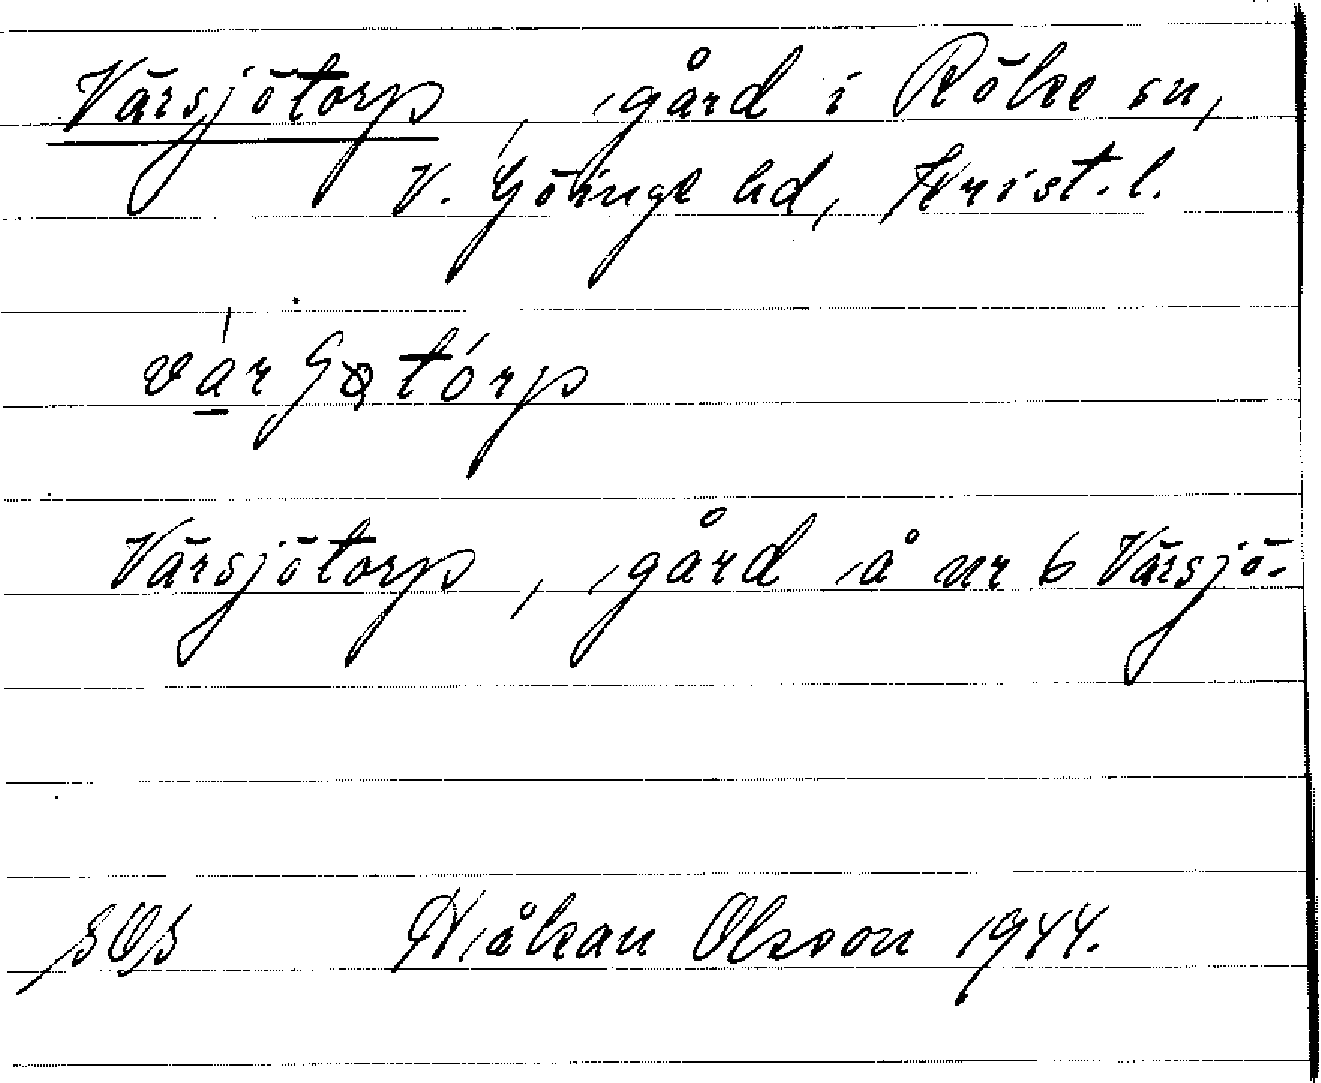 Värsjötorp, gård i Röke sn,
V. Göinge hd, Krist. l.
Värsjötorp, gård å nr 6 Värsjö.
SOS Håkan Olsson 1944.